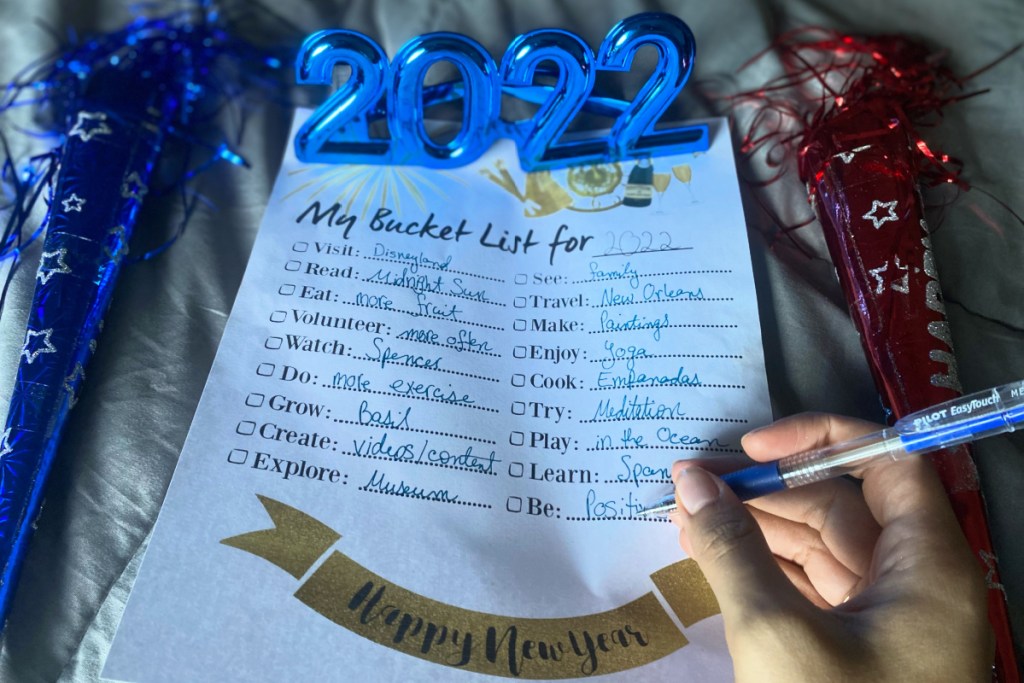 2022
My Bucket List for 2022
Visit: Disneyland
Read: Midnight Sun
Eat: more fruit
Volunteer: more often
Watch: Spencer
Do: more exercise
Grow: Basil
Create: videos/content
Explore: Museum
See: family
Travel: New Orleans
Make: Paintings
Enjoy: Yoga
Cook: Empanadas
Try: Meditation
Play: in the Ocean
Learn: Span
Be: Positi
Happy New Year
PILOT EasyTouch